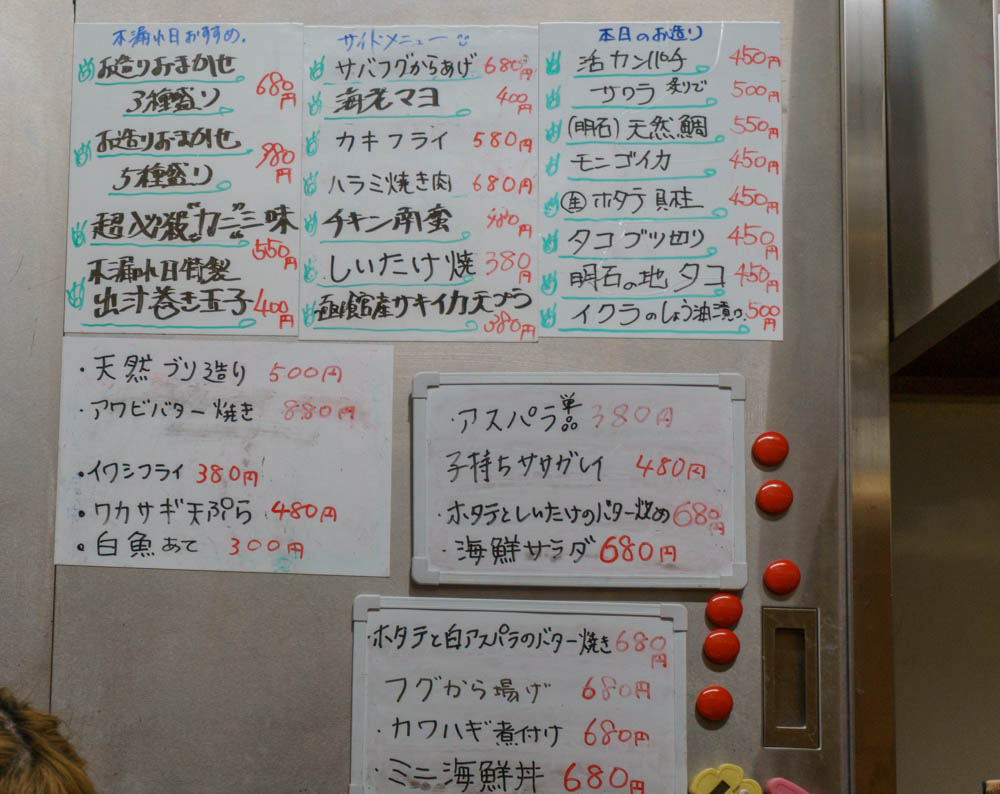 木漏れ日おすすめ.
お造りおまかせ
3種盛り
680円
お造りおまかせ
5種盛り
980円
超必殺"カニ"三味
550円
木漏れ日特製
出汁巻き玉子 400円
サイドメニュー
サバフグからあげ 680円
海老マヨ 400円
カキフライ 580円
ハラミ焼き肉 680円
チキン南蛮 980円
しいたけ焼 380円
函館産サキイカ天プラ
380円
本日のお造り
活カンパチ 450円
サワラ 炙りで 500円
(明石)天然鯛 550円
モンゴイカ 450円
生ホタテ貝柱 450円
タコブツ切り 450円
明石の地タコ 450円
イクラのしょう油漬け 500円
・天然ブリ造り 500円
・アワビバター焼き 880円
・イワシフライ 380円
・ワカサギ天ぷら 480円
・白魚あて 300円
・アスパラ単品 380円
子持ちササガレイ 480円
・ホタテとしいたけのバター炒め 680円
・海鮮サラダ 680円
・ホタテと白アスパラのバター焼き 680円
フグから揚げ 680円
・カワハギ煮付け 680円
・ミニ海鮮丼 680円